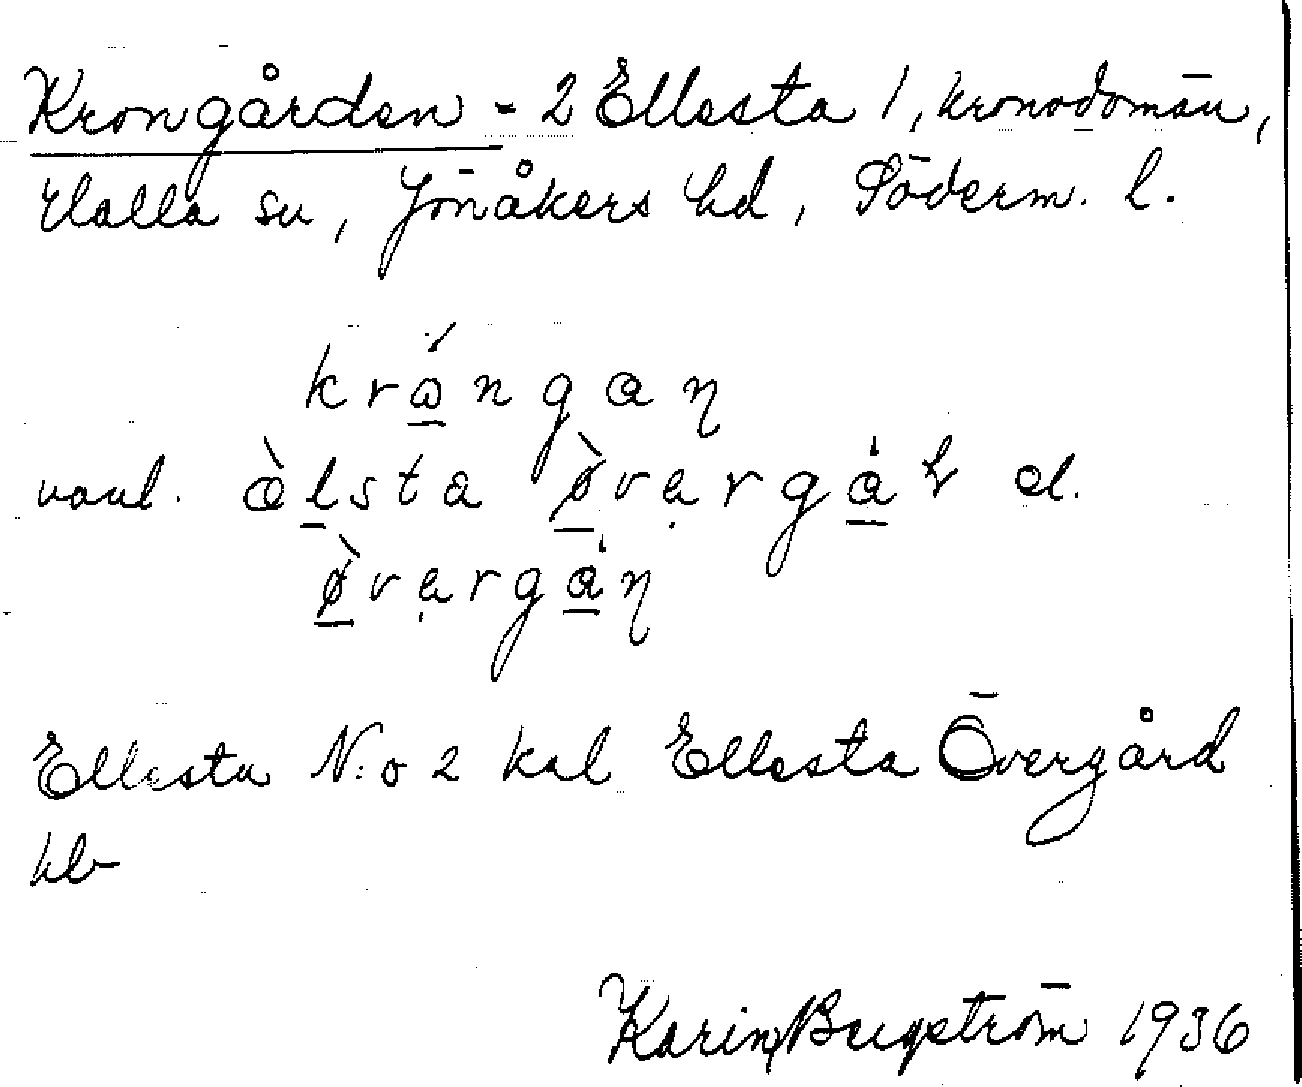 Krongården - 2 Ellesta 1, kronodomän,
Halla sn, Jönåkers hd, Söderm. l.
krångan
vanl. àlsta ø̀vargá el.
ø̀vargáɳ
Ellesta N:o 2 kal Ellesta Övergård
hb
Karin Bergström 1936